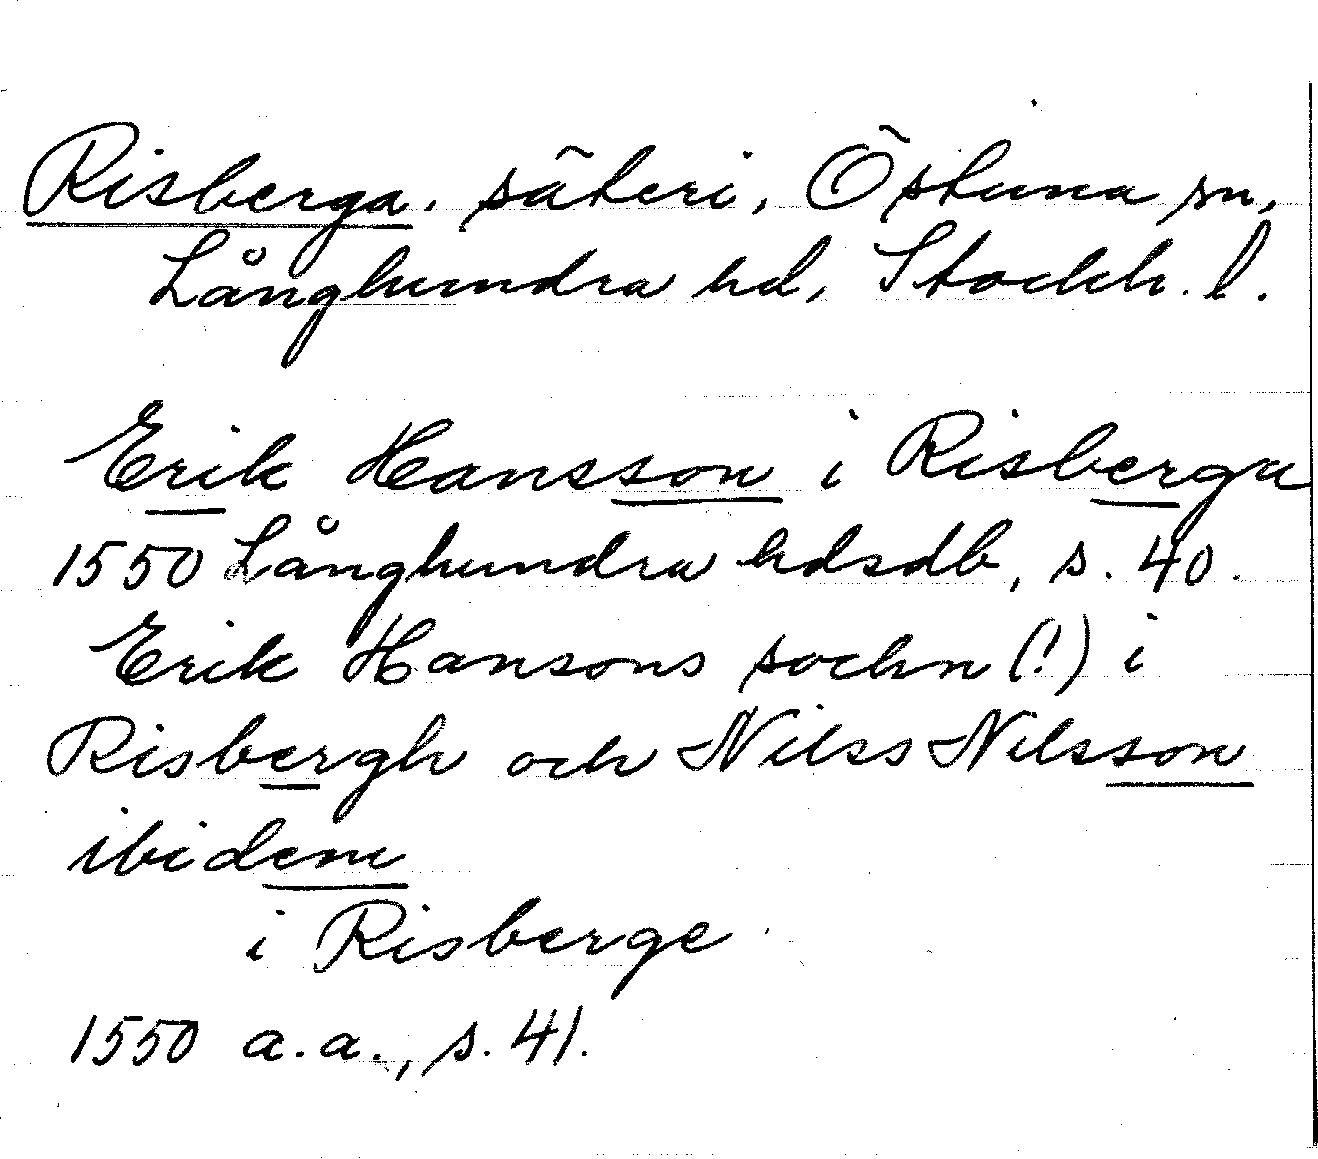 Risberga. säteri, Östuna sn,
Långhundra hd, Stockh. l.
Erik Hansson i Risberga
1550 Långhundra hdsdb, s. 40.
Erik Hansons sochn (!) i
Risbergh och Nilss Nilsson
ibidem
i Risberge
1550 a.a., s. 41.